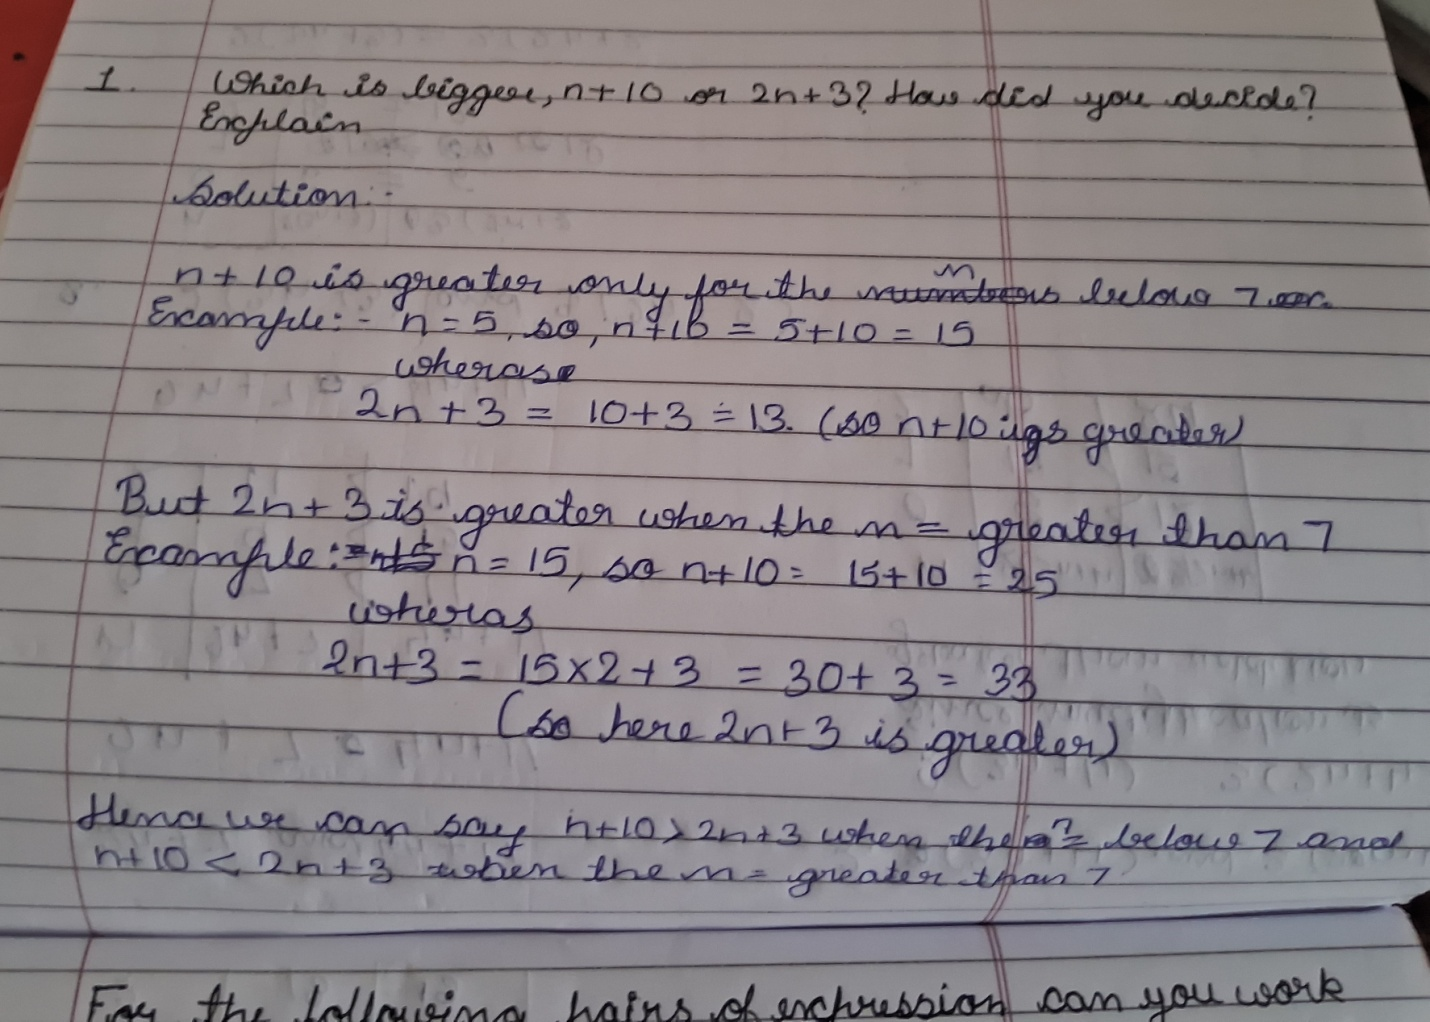 1. Which is bigger, n+10 or 2n+3? How did you decide?
Explain
Solution:-
n+10 is greater only for the n below 7
Example:- n=5, so, n+10 = 5+10 = 15
wheras
2n+3 = 10+3 = 13. (so n+10 is greater)
But 2n+3 is greater when the n = greater than 7
Example:- n=15, so n+10= 15+10 = 25
wheras
2n+3 = 15×2+3 = 30+3 = 33
(so here 2n+3 is greater)
Hence we can say n+10>2n+3 when the n= below 7 and
n+10 < 2n+3 when the n= greater than 7
For the following pairs of expression can you work